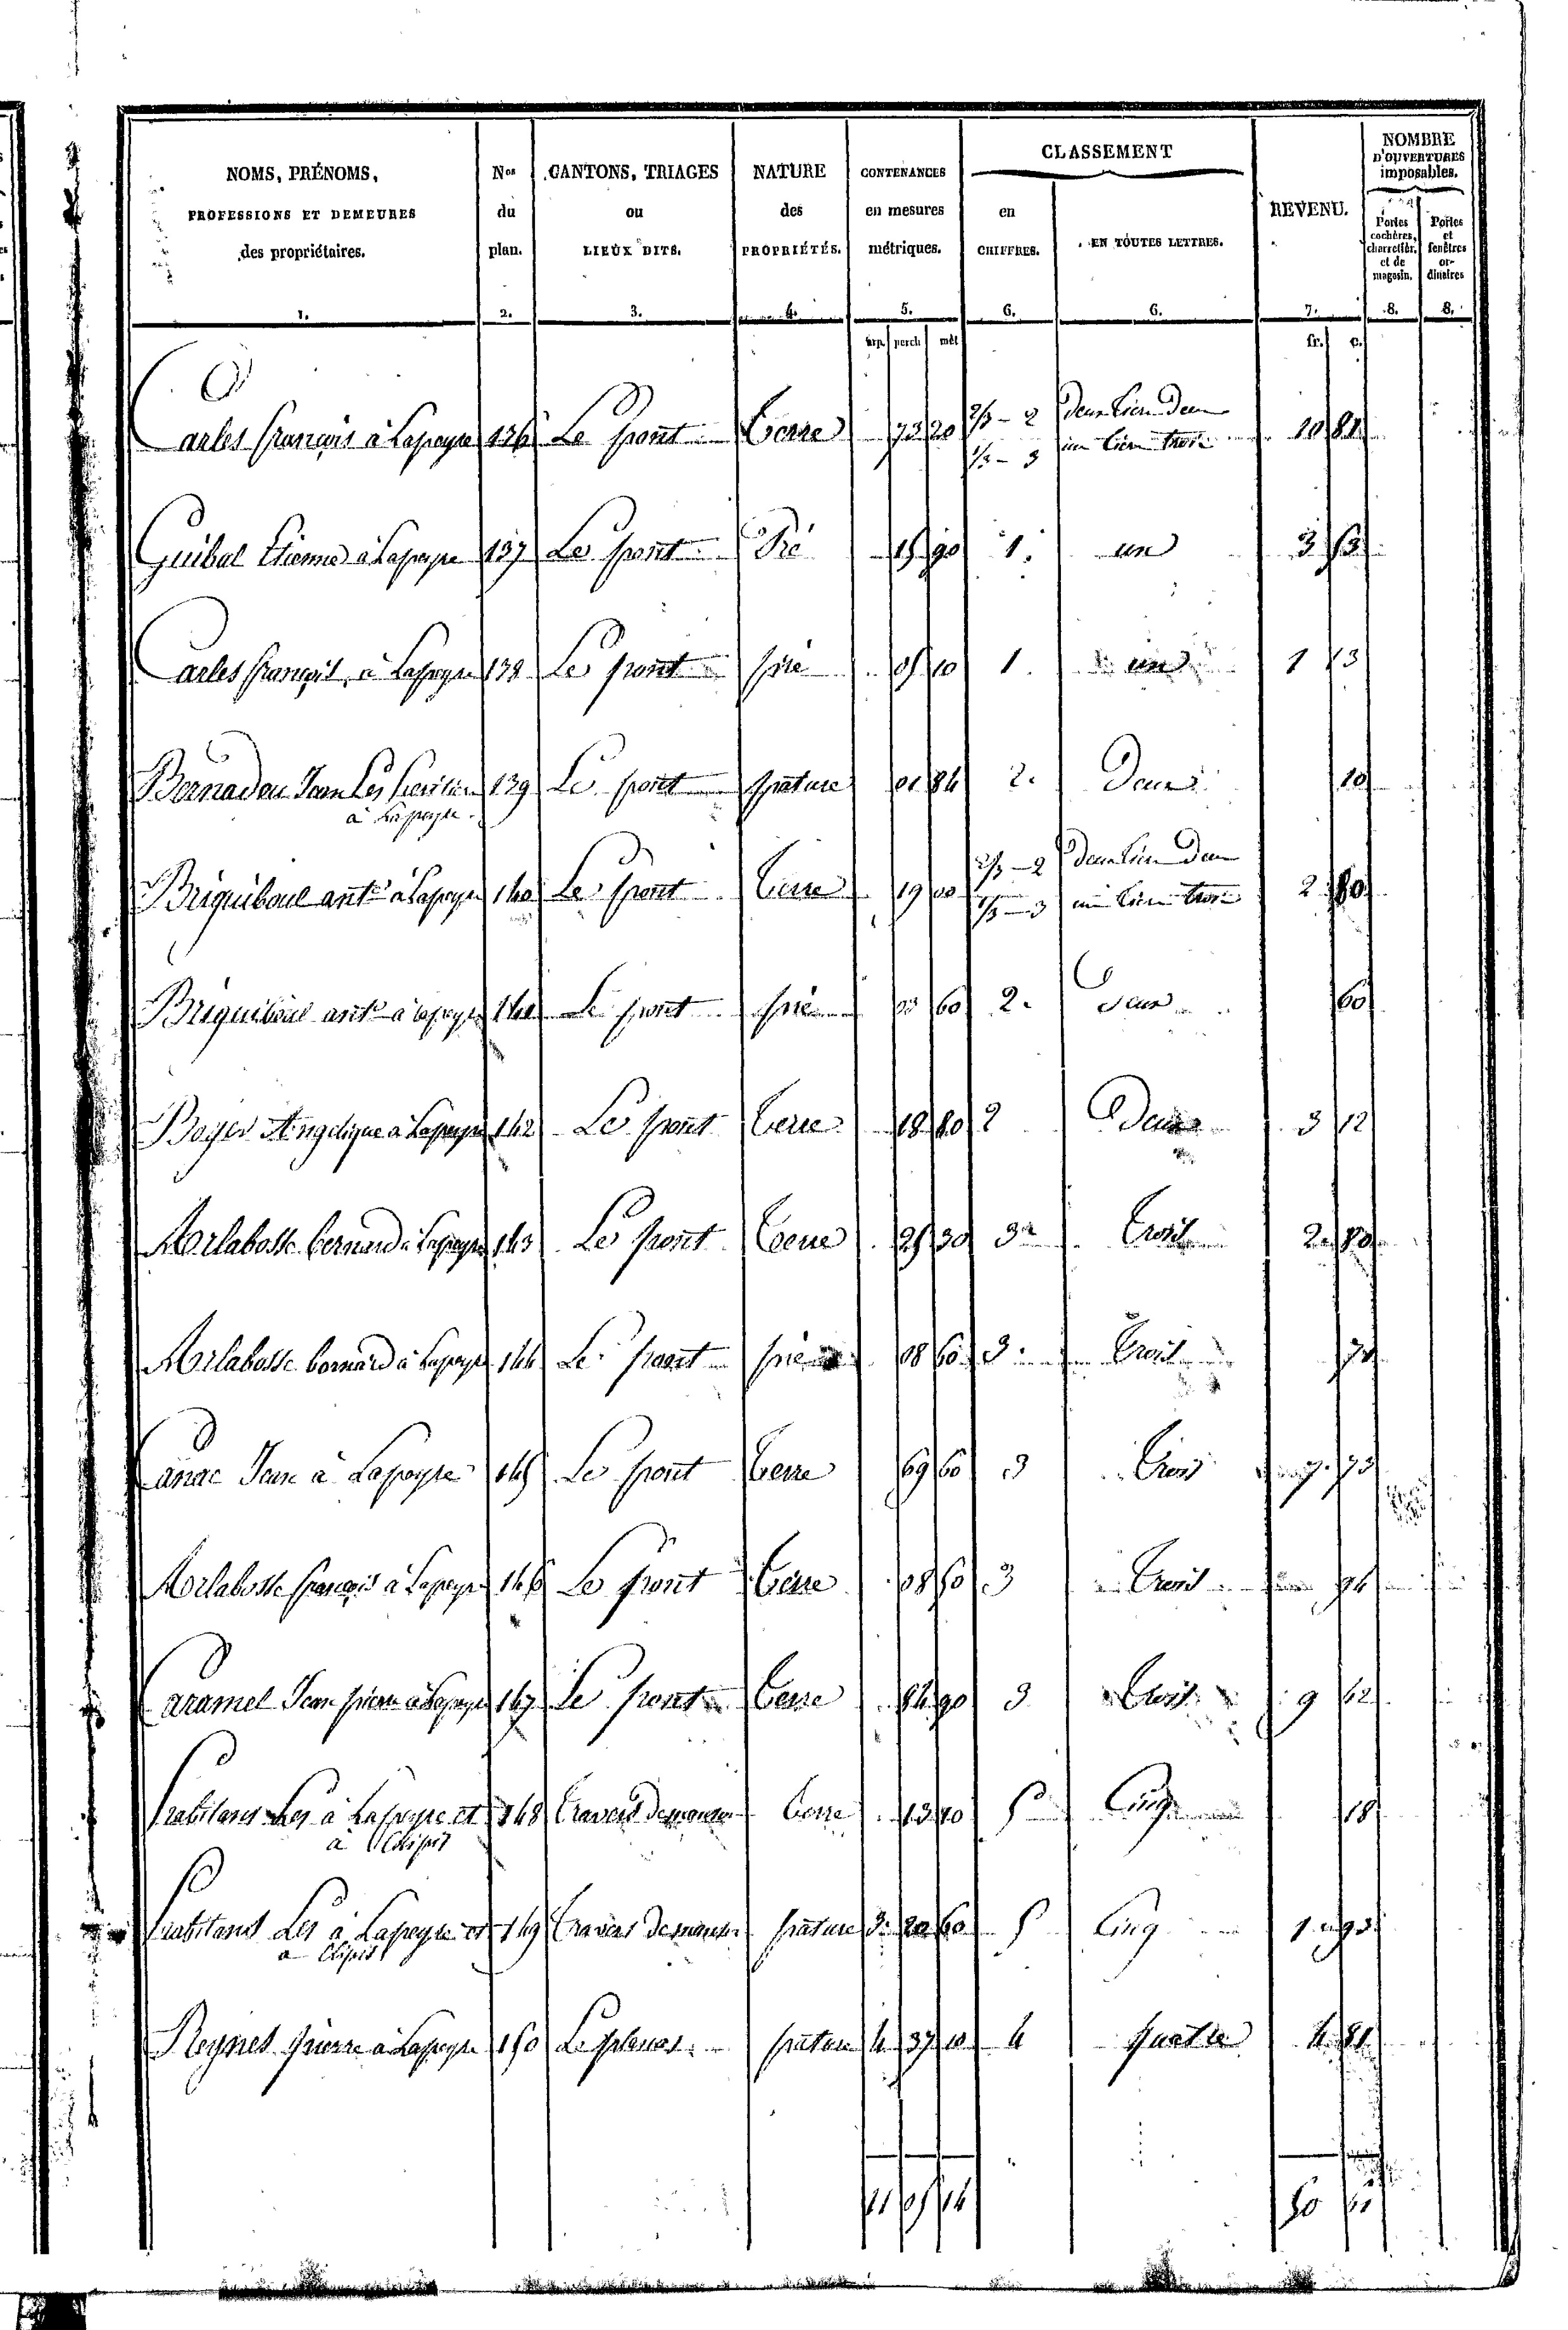 NOMS, PRÉNOMS, PROFESSIONS ET DEMEURES des propriétaires. Nos du plan. CANTONS, TRIAGES ou LIEUX DITS. NATURE des PROPRIÉTÉS. CONTENANCES en mesures métriques. CLASSEMENT en CHIFFRES. EN TOUTES LETTRES. REVENU. NOMBRE D'OUVERTURES imposables. Portes cochères, charretièr. et de magasin. Portes et fenêtres ordinaires
1. 2. 3. 4. 5. 6. 6. 7. 8. 8.
arp. perch mèt fr. c.
Carles françois à Lapeyre 136 Le pont Terre 73 20 2/3 - 2 deux tiers deux 10 81
1/3 - 3 un tiers trois
Guibal Etienne à Lapeyre 137 Le pont Pré 15 90 1. un 3 53
Carles françois à Lapeyre 138 Le pont pré 05 10 1. un 1 13
Bernadou Jean Les 139 Le pont pature 01 84 2. Deux 10
à Lapeyre
Briguiboul ant.e à Lapeyre 140 Le pont Terre 19 00 2/3 - 2 deux tiers deux 2 80
1/3 - 3 un tiers trois
Briguiboul ant.e à Lapeyre 141 Le pont pré 03 60 2. Deux 60
Boyer Angelique à Lapeyre 142 Le pont Terre 18 80 2 Deux 3 12
Morlabosse bernard à Lapeyre 143 Le pont Terre 25 30 3 Trois 2 80
Morlabosse bernard à Lapeyre 144 Le pont pré 08 60 3. Trois
Canac Jean à Lapeyre 145 Le pont Terre 69 60 3 Trois 7 73
Morlabosse françois à Lapeyre 146 Le pont Terre 08 50 3 Trois 94
Caramel Jean pierre à Lapeyre 147 Le pont Terre 84 90 3 Trois 9 42
habitans Les à Lapeyre et 148 Travers Terre 13 10 5 Cinq 18
à
habitans Les à Lapeyre et 149 Travers pature 3 20 60 5 Cinq 1 93
à
Reynes pierre à Lapeyre 150 pature 4 37 10 4 quatre 4 81
11 05 14 50